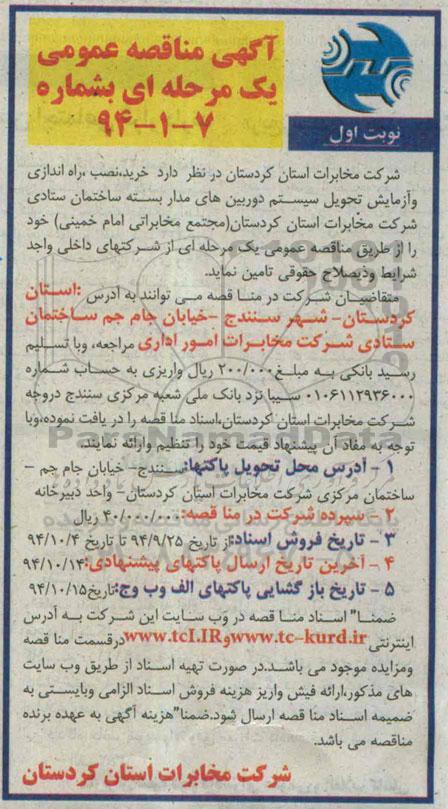 آگهی مناقصه عمومی
یک مرحله ای بشماره
۹۴-۱-۷
نوبت اول
شرکت مخابرات استان کردستان در نظر دارد خرید،نصب ،راه اندازی
وآزمایش تحویل سیستم دوربین های مدار بسته ساختمان ستادی
شرکت مخابرات استان کردستان(مجتمع مخابراتی امام خمینی) خود
را از طریق مناقصه عمومی یک مرحله ای از شرکتهای داخلی واجد
شرایط وذیصلاح حقوقی تامین نماید.
متقاضیان شرکت در منا قصه می توانند به آدرس :استان
کردستان- شهر سنندج -خیابان جام جم ساختمان
ستادی شرکت مخابرات امور اداری مراجعه، وبا تسلیم
رسید بانکی به مبلغ۲۰۰/۰۰۰ ریال واریزی به حساب شماره
۰۱۰۶۱۱۲۹۳۶۰۰۰ سیبا نزد بانک ملی شعبه مرکزی سنندج دروجه
شرکت مخابرات استان کردستان،اسناد منا قصه را در یافت نموده،وبا
توجه به مفاد آن پیشنهاد قیمت خود را تنظیم وارائه نمایند.
۱- آدرس محل تحویل پاکتها: سنندج- خیابان جام جم -
ساختمان مرکزی شرکت مخابرات استان کردستان- واحد دبیرخانه
۲- سپرده شرکت در منا قصه: ۴۰/۰۰۰/۰۰۰ ریال
۳- تاریخ فروش اسناد:از تاریخ ۹۴/۹/۲۵ تا تاریخ ۹۴/۱۰/۴
۴- آخرین تاریخ ارسال پاکتهای پیشنهادی:۹۴/۱۰/۱۴
۵- تاریخ باز گشایی پاکتهای الف وب وج:تاریخ۹۴/۱۰/۱۵
ضمنا" اسناد منا قصه در وب سایت این شرکت به آدرس
اینترنتی www.tc-kurd.irوwww.tcI.IRدرقسمت منا قصه
ومزایده موجود می باشد.در صورت تهیه اسناد از طریق وب سایت
های مذکور،ارائه فیش واریز هزینه فروش اسناد الزامی وبایستی به
ضمیمه اسناد منا قصه ارسال شود.ضمنا"هزینه آگهی به عهده برنده
مناقصه می باشد.
شرکت مخابرات استان کردستان